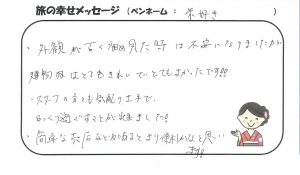 旅の幸せメッセージ（ペンネーム： 茶好き ）
・外観が古く初め見た時は不安になりましたが
建物内はとてもきれいでとてもよかったです!!
・スタッフの方々も気配り上手で
ゆっくり過ごすことが出来ました!!
・簡単な売店などが有るとより便利かなと思い
ます!!